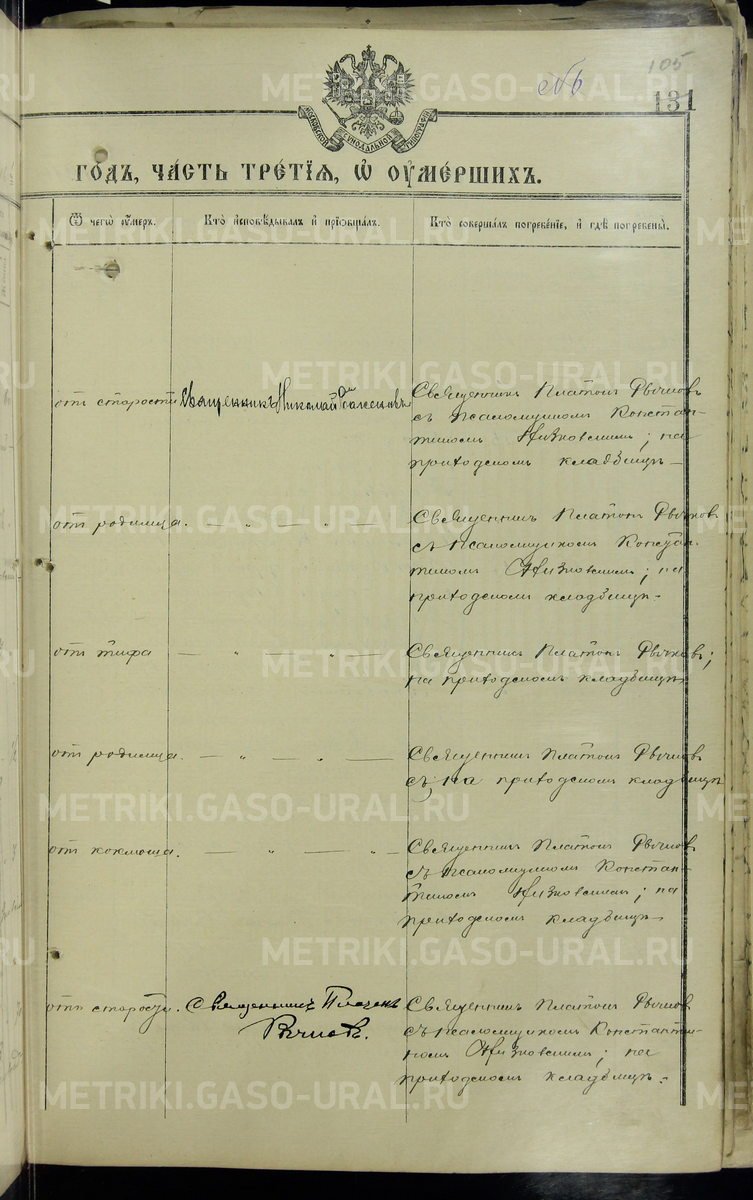 105
об
131
МОСКОВСКОЙ СѴНОДАЛЬНОЙ ТИПОГРАФІИ
ГОДЪ, ЧАСТЬ ТРЕТІЯ, Ѡ ОУМЕРШИХЪ.
Ѿ чегѡ оумеръ.
Кто исповѣдывалъ и прїобщалъ.
Кто совершалъ погребенїе, и гдѣ погребены.
отъ старости
Священникъ Николай
Священникъ Платонъ Рычковъ
съ псаломщикомъ Констан-
тиномъ; на
приходскомъ кладбищѣ
отъ родимца. — „ — „ —
Священникъ Платонъ Рычковъ
съ псаломщикомъ Констан-
тиномъ; на
приходскомъ кладбищѣ.
отъ тифа — „ — „ —
Священникъ Платонъ Рычковъ;
на приходскомъ кладбищѣ
отъ родимца. — „ — „ —
Священникъ Платонъ Рычковъ
съ; на приходскомъ кладбищѣ
отъ коклюша. — „ — „ —
Священникъ Платонъ Рычковъ
съ псаломщикомъ Констан-
тиномъ; на
приходскомъ кладбищѣ
отъ старости.
Священникъ Платонъ
Рычковъ.
Священникъ Платонъ Рычковъ
съ псаломщикомъ Константи-
номъ; на
приходскомъ кладбищѣ.
METRIKI.GASO-URAL.RU